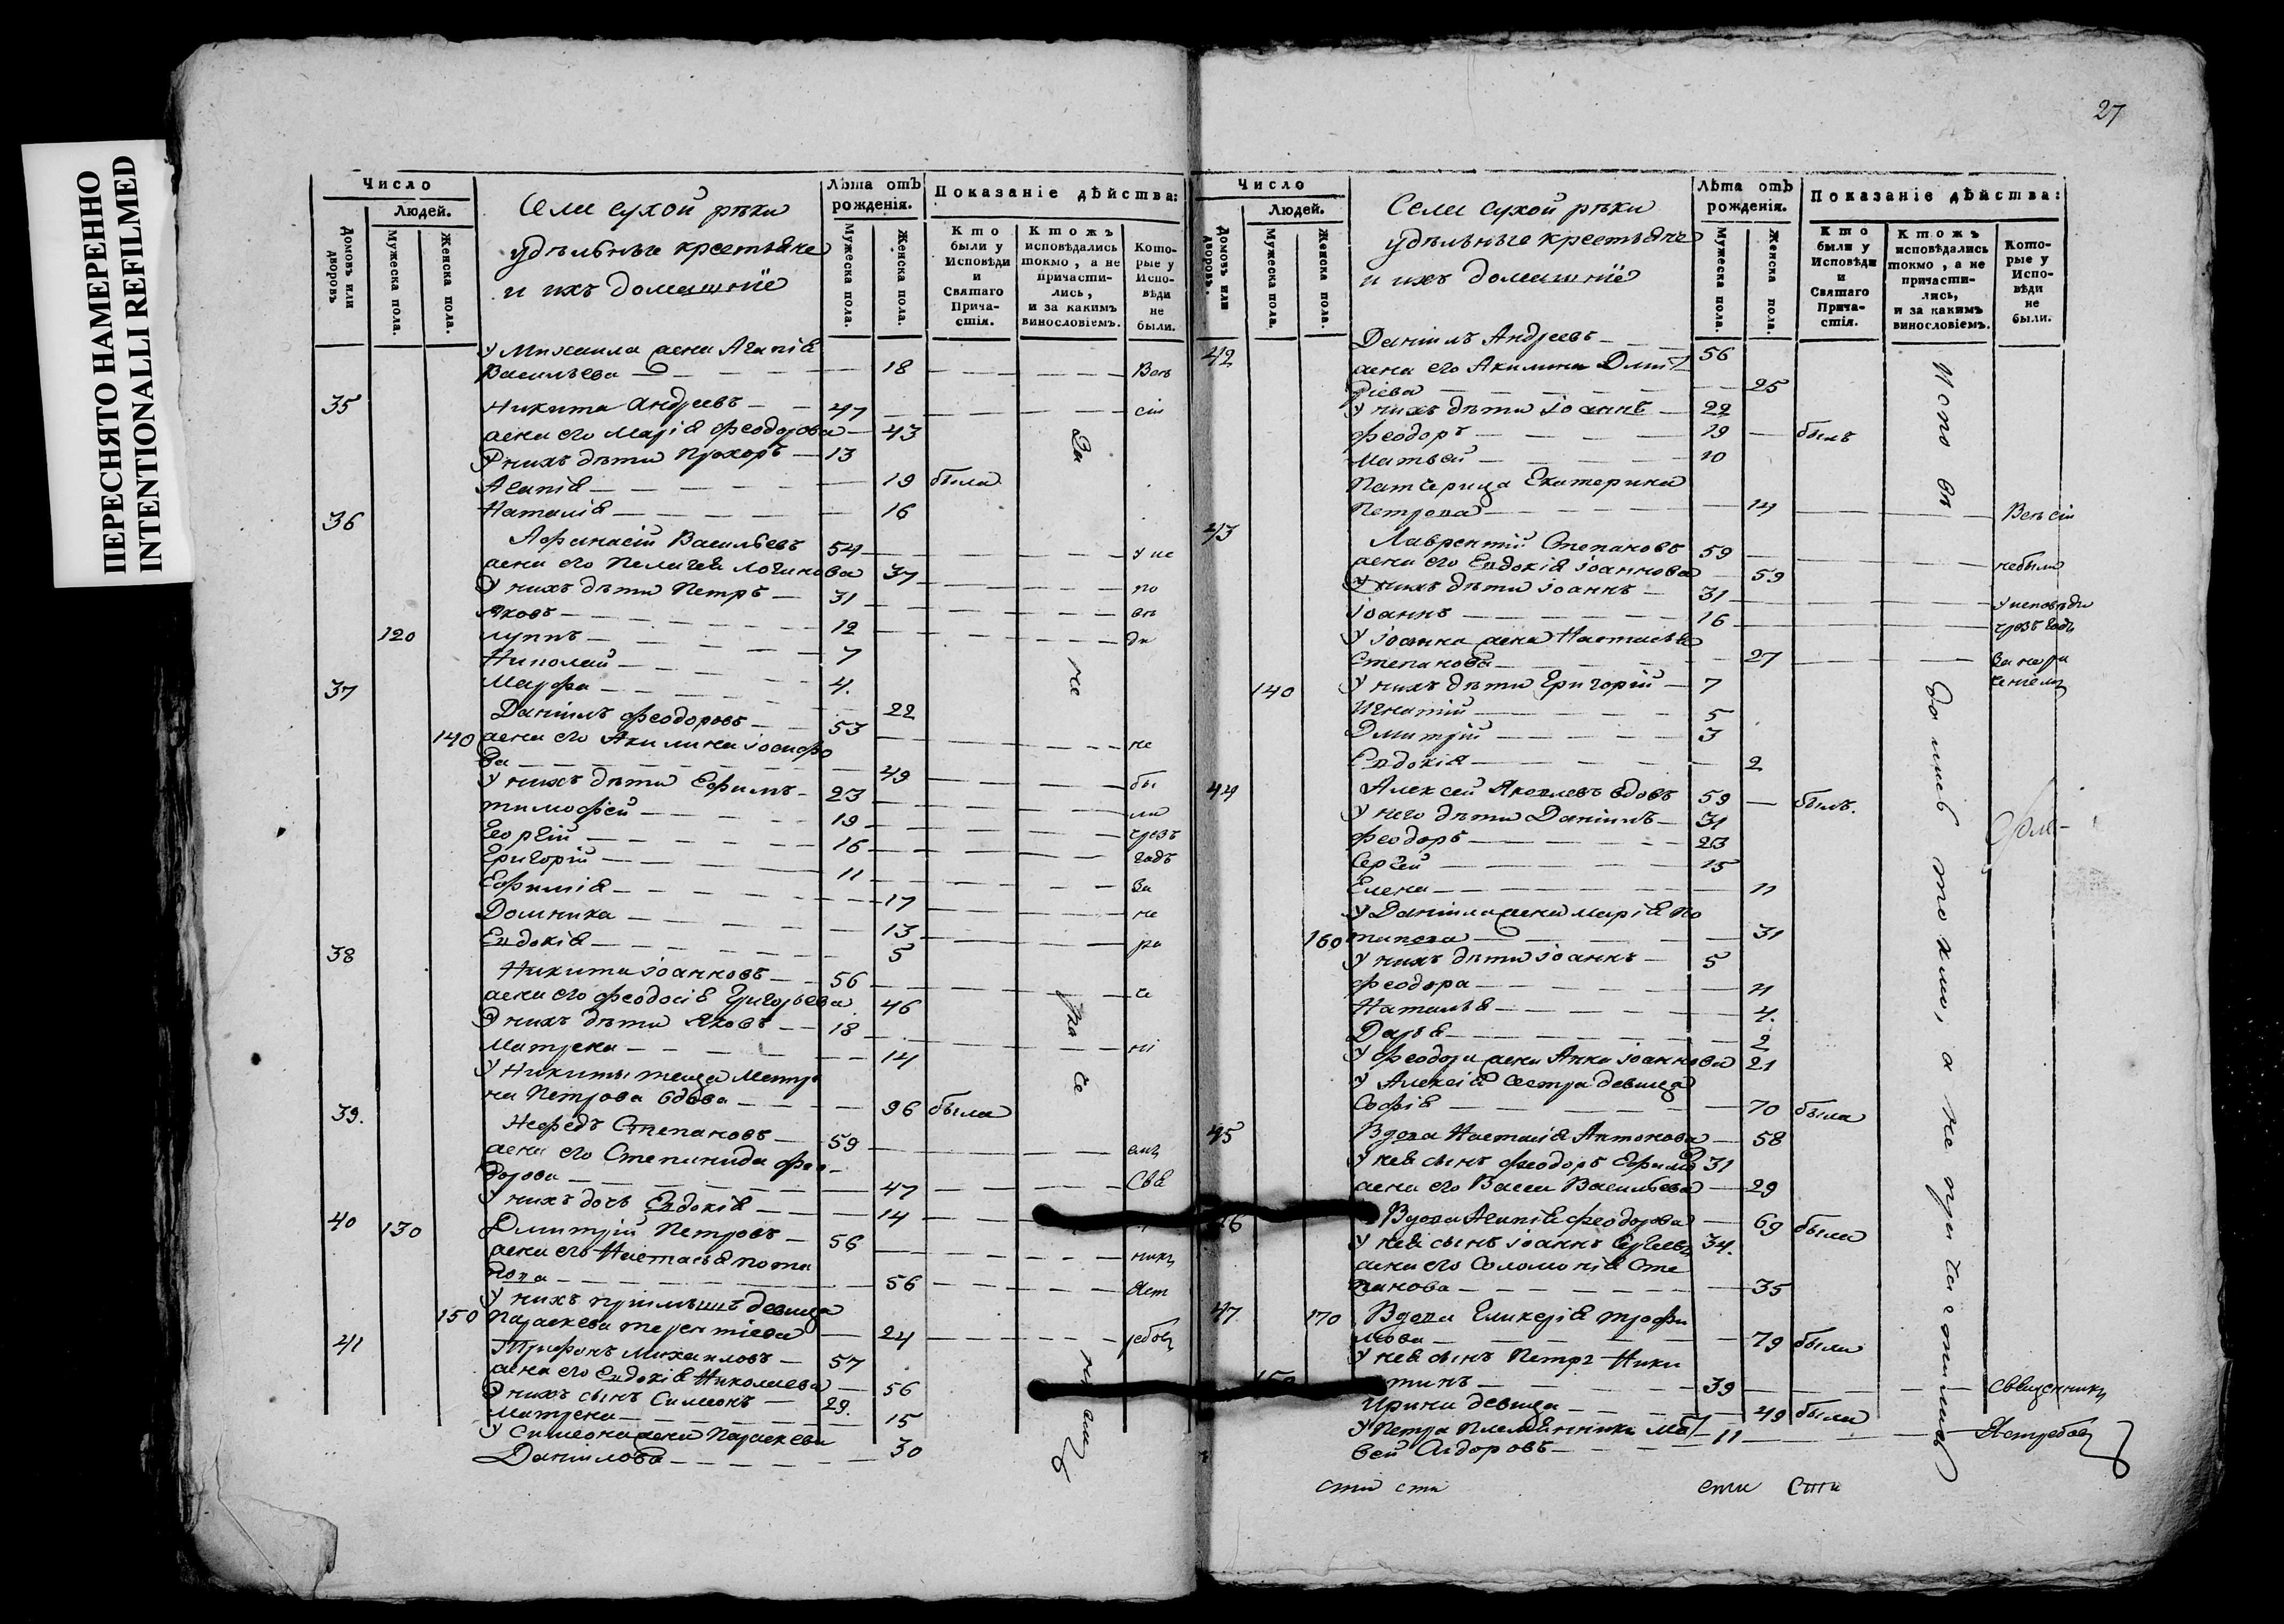 ПЕРЕСНЯТО НАМЕРЕННО
INTENTIONALLI REFILMED
Число
Людей.
Домовъ или дворовъ
Мужеска пола.
Женска пола.
Села сухой рѣки
удѣльные крестьяне
и ихъ домашніе
Лѣта отъ рожденія.
Мужеска пола.
Женска пола.
Показаніе дѣйства:
Кто были у Исповѣди и Святаго Причастія.
Ктожъ исповѣдались токмо, а не причастились, и за какимъ винословіемъ.
Которые у Исповѣди не были.
У Михаила жена Агапія
Васильева 18 Всѣ
35 Никита Андреевъ 47 сіи
жена его Марія Феодорова 43
У нихъ дѣти Прохоръ 13
Агапія 19 была
Наталія 16
36 Афанасій Васильевъ 54 у ис
жена его Пелагея Логинова 37 по
У нихъ дѣти Петръ 31 вѣ
Яковъ 12 ди
120 Луппъ 7
Николай 4.
37 Марфа 22
Даніилъ Феодоровъ 53 не
140 жена его Акилина Іосифо
ва 49 бы
У нихъ дѣти Ефимъ 23 ли
Тимофей 19 чрезъ
Георгій 16 годъ
Григорій 11 за
Ефимія 17 не
Домника 13 ра
Евдокія 5
38 Никита Іоанновъ 56 че
жена его Феодосія Григорьева 46
У нихъ дѣти Яковъ 18 ні
Матрена 14
У Никиты теща Матре
на Петрова вдова 96 была
39. Нефедъ Степановъ 59 емъ
жена его Степанида Фео-
дорова 47 Свя
У нихъ дочь Евдокія 14
40 130 Дмитрій Петровъ 56 никъ
жена его Настасья Пота
пова 56 Яст
У нихъ приимышъ девица
150 Параскева Терентіева 24 ребовъ
41 Трифонъ Михаиловъ 57
жена его Евдокія Николаева 56
У нихъ сынъ Симеонъ 29.
Матрена 15
У Симеона жена Параскева
Даніилова 30
27
Число
Людей.
Домовъ или дворовъ.
Мужеска пола.
Женска пола.
Села сухой рѣки
удѣльные крестьяне
и ихъ домашніе
Лѣта отъ рожденія.
Мужеска пола.
Женска пола.
Показаніе дѣйства:
Кто были у Исповѣди и Святаго Причастія.
Ктожъ исповѣдались токмо, а не причастились, и за какимъ винословіемъ.
Которые у Исповѣди не были.
42 Даніилъ Андреевъ 56
жена его Акилина Дмит
ріева 25
У нихъ дѣти Іоаннъ 22
Феодоръ 19 былъ
Матвей 10
Патчерица Екатерина
Петрова 14 Всѣ сіи
43 Лаврентій Степановъ 59
жена его Евдокія Іоаннова 59 небыли
У нихъ дѣти Іоаннъ 31 у исповѣди
Іоаннъ 16 чрезъ годъ
У Іоанна жена Настасья
Степанова 27 за нера
140 У нихъ дѣти Григорій 7 ченіемъ
Игнатій 5
Дмитрій 3
Евдокія 2
44 Алексей Яковлевъ вдовъ 59 былъ.
У него дѣти Даніилъ 31
Феодоръ 23
Сергей 15
Елена 11
У Даніила жена Марія По
160 тапова 31
У нихъ дѣти Іоаннъ 5
Феодора 11
Наталья 4.
Дарья 2
У Феодора жена Анна Іоаннова 21
У Алексія сестра девица
Софія 70 была
45 Вдова Настасія Антонова 58
У нея сынъ Феодоръ Ефимовъ 31
жена его Васса Васильева 29
46 Вдова Агапія Феодорова 69 была
У нея сынъ Іоаннъ Сергеевъ 34.
жена его Соломонія Сте
панова 35
47 170 Вдова Гликерія Трофи
мова 79 была
У нея сынъ Петръ Ники
тинъ 39 священникъ
Ирина девица 49 была
У Петра племянникъ Мат
вей Сидоровъ 11 Ястребовъ
Исповѣдались токмо, а не причастились
сти сти сти сти